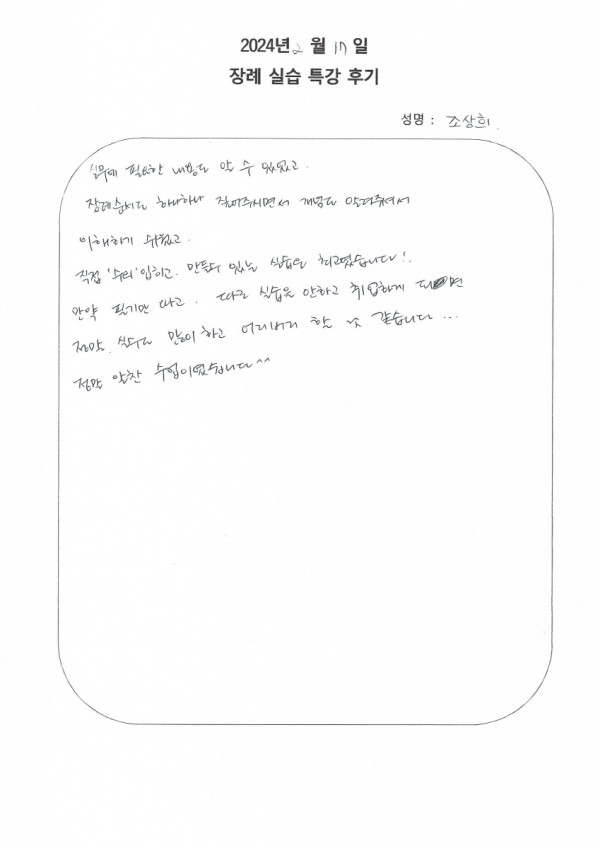 2024년 2 월 17 일
장례 실습 특강 후기
성명 : 조상희
실무에 필요한 내용도 알 수 있었고.
장례순서도 하나하나 집어주시면서 개념도 알려주셔서
이해하기 쉬웠고.
직접 '수의' 입히고. 만들수 있는 실습은 최고였습니다!.
만약 필기만 따고. 따로 실습을 안하고 취업하게 되면
정말. 실수도 많이하고 어리버리 할 것 같습니다...
정말 알찬 수업이였습니다^^